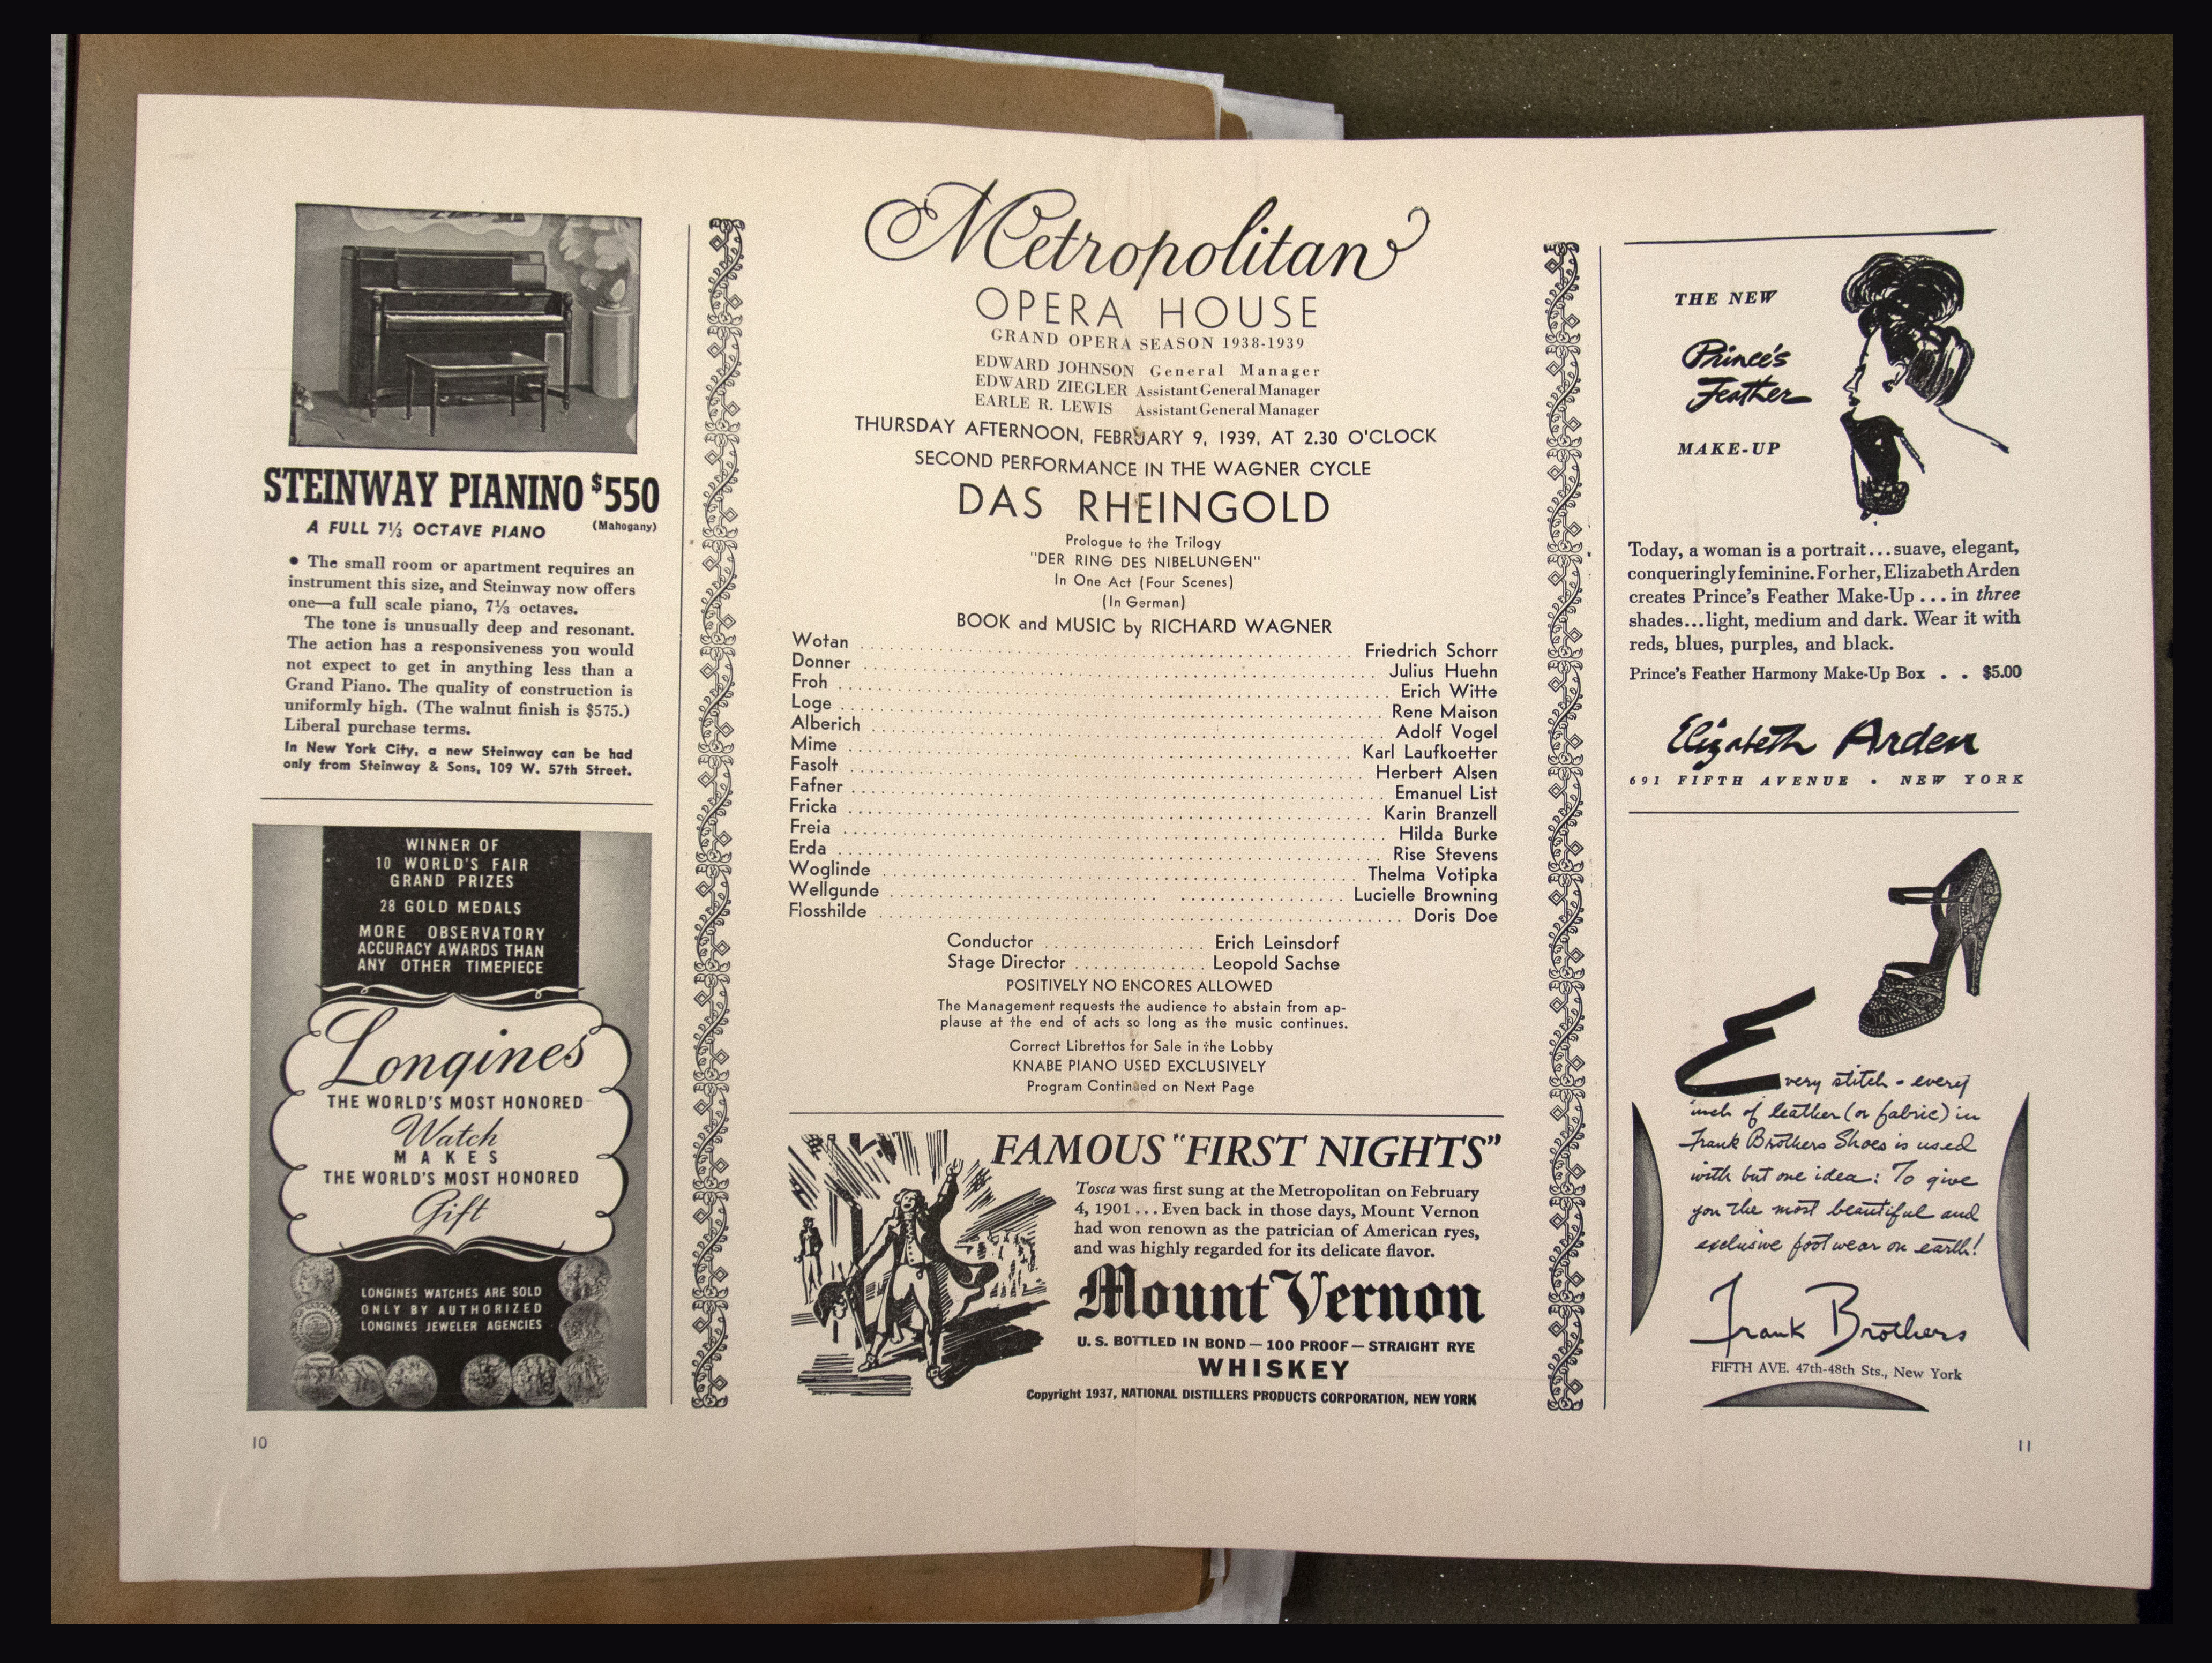 STEINWAY PIANINO $550
A FULL 7⅓ OCTAVE PIANO (Mahogany)
• The small room or apartment requires an
instrument this size, and Steinway now offers
one—a full scale piano, 7⅓ octaves.
The tone is unusually deep and resonant.
The action has a responsiveness you would
not expect to get in anything less than a
Grand Piano. The quality of construction is
uniformly high. (The walnut finish is $575.)
Liberal purchase terms.
In New York City, a new Steinway can be had
only from Steinway & Sons, 109 W. 57th Street.
WINNER OF
10 WORLD'S FAIR
GRAND PRIZES
28 GOLD MEDALS
MORE OBSERVATORY
ACCURACY AWARDS THAN
ANY OTHER TIMEPIECE
Longines
THE WORLD'S MOST HONORED
Watch
MAKES
THE WORLD'S MOST HONORED
Gift
LONGINES WATCHES ARE SOLD
ONLY BY AUTHORIZED
LONGINES JEWELER AGENCIES
10
Metropolitan
OPERA HOUSE
GRAND OPERA SEASON 1938-1939
EDWARD JOHNSON General Manager
EDWARD ZIEGLER Assistant General Manager
EARLE R. LEWIS Assistant General Manager
THURSDAY AFTERNOON, FEBRUARY 9, 1939, AT 2.30 O'CLOCK
SECOND PERFORMANCE IN THE WAGNER CYCLE
DAS RHEINGOLD
Prologue to the Trilogy
"DER RING DES NIBELUNGEN"
In One Act (Four Scenes)
(In German)
BOOK and MUSIC by RICHARD WAGNER
Wotan Friedrich Schorr
Donner Julius Huehn
Froh Erich Witte
Loge Rene Maison
Alberich Adolf Vogel
Mime Karl Laufkoetter
Fasolt Herbert Alsen
Fafner Emanuel List
Fricka Karin Branzell
Freia Hilda Burke
Erda Rise Stevens
Woglinde Thelma Votipka
Wellgunde Lucielle Browning
Flosshilde Doris Doe
Conductor Erich Leinsdorf
Stage Director Leopold Sachse
POSITIVELY NO ENCORES ALLOWED
The Management requests the audience to abstain from ap-
plause at the end of acts so long as the music continues.
Correct Librettos for Sale in the Lobby
KNABE PIANO USED EXCLUSIVELY
Program Continued on Next Page
FAMOUS "FIRST NIGHTS"
Tosca was first sung at the Metropolitan on February
4, 1901 . . . Even back in those days, Mount Vernon
had won renown as the patrician of American ryes,
and was highly regarded for its delicate flavor.
Mount Vernon
U. S. BOTTLED IN BOND — 100 PROOF — STRAIGHT RYE
WHISKEY
Copyright 1937, NATIONAL DISTILLERS PRODUCTS CORPORATION, NEW YORK
THE NEW
Prince's
Feather
MAKE-UP
Today, a woman is a portrait...suave, elegant,
conqueringly feminine. For her, Elizabeth Arden
creates Prince's Feather Make-Up ... in three
shades...light, medium and dark. Wear it with
reds, blues, purples, and black.
Prince's Feather Harmony Make-Up Box . . $5.00
Elizabeth Arden
691 FIFTH AVENUE • NEW YORK
Every stitch - every
inch of leather (or fabric) in
Frank Brothers Shoes is used
with but one idea: To give
you the most beautiful and
exclusive footwear on earth!
Frank Brothers
FIFTH AVE. 47th-48th Sts., New York
11